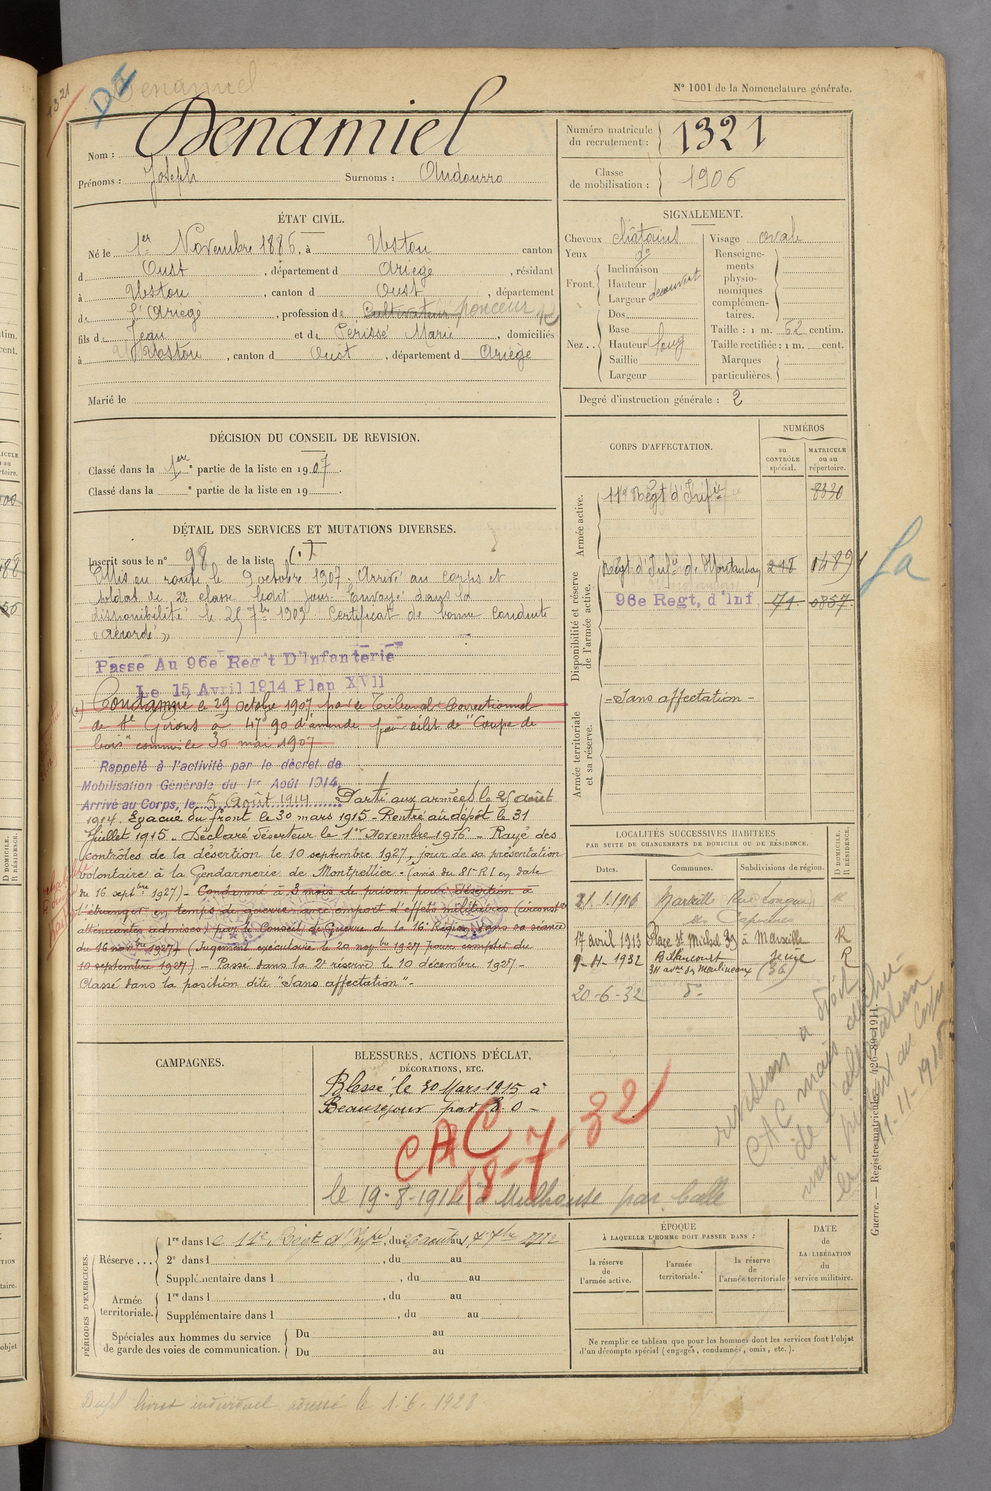 1321
DF
Denamiel
N° 1001 de la Nomenclature générale.
Nom : Denamiel
Prénoms : Joseph Surnoms : Audourro
Numéro matricule du recrutement : 1321
Classe de mobilisation : 1906
ÉTAT CIVIL.
Né le 1er Novembre 1886, à Ustou canton
d Oust, département d Ariège, résidant
à Ustou, canton d Oust, département
de l'Ariège, profession de Cultivateur ponceur
fils de Jean et de Périssé Marie, domiciliés
à Ustou, canton d Oust, département d Ariège
Marié le
SIGNALEMENT.
Cheveux châtains
Yeux do
Front. Inclinaison
Hauteur
Largeur découvert
Nez.. Dos
Base
Hauteur long
Saillie
Largeur
Visage oval
Renseignements physionomiques complémentaires.
Taille : 1 m. 62 centim.
Taille rectifiée : 1 m. cent.
Marques particulières.
Degré d'instruction générale : 2
DÉCISION DU CONSEIL DE REVISION.
Classé dans la 1ère partie de la liste en 1907.
Classé dans la e partie de la liste en 19
CORPS D'AFFECTATION.
NUMÉROS
au CONTRÔLE spécial.
MATRICULE ou au répertoire.
Armée active.
11e Régt d'Infie 8330
Disponibilité et réserve de l'armée active.
Régt d'Infie de Montauban 218 01489
96e Regt, d'Inf 71 0857
La
Armée territoriale et sa réserve.
- Sans affectation -
DÉTAIL DES SERVICES ET MUTATIONS DIVERSES.
Inscrit sous le n° 98 de la liste
Mis en route le 9 octobre 1907, Arrivé au corps et
soldat de 2e classe ledit jour. Envoyé dans la
disponibilité le 25 7bre 1909 Certificat de bonne conduite
"accordé"
Passé Au 96e Reg't D'Infanterie
Le 15 Avril 1914 Plan XVII
(1) Condamné le 29 octobre 1907 par le Tribunal Correctionnel
de St Girons à 47f 90 d'amende pour délit de "Coupe de
bois" commis le 30 mai 1907
Rappelé à l'activité par le décret de
Mobilisation Générale du 1er Août 1914.
Arrivé au Corps, le 5 Août 1914 Parti aux armées le 25 août
1914. Evacué du front le 30 mars 1915 - Rentré au dépôt le 31
Juillet 1915 - Déclaré déserteur le 1er Novembre 1916 - Rayé des
contrôles de la désertion le 10 septembre 1927, jour de sa présentation
volontaire à la Gendarmerie de Montpellier - (avis du 81e RI en date
du 16 septbre 1927) - Condamné à 3 mois de prison pour désertion à
l'étranger en temps de guerre avec emport d'effets militaires (circonstces
atténuantes admises) par le Conseil de Guerre de la 16e Région, dans sa séance
du 16 novbre 1927) (Jugement exécutoire le 20 novbre 1927 pour compter du
10 septembre 1927) - Passé dans la 2e réserve le 10 décembre 1927 -
Classé dans la position dite "Sans affectation" -
LOCALITÉS SUCCESSIVES HABITÉES
PAR SUITE DE CHANGEMENTS DE DOMICILE OU DE RÉSIDENCE.
Dates. Communes. Subdivisions de région. D DOMICILE. R RÉSIDENCE.
21.1.1916 Marseille Rue Longue
des Capucins
17 avril 1913 Place St Michel 39 à Marseille R
9-4-1932 Billancourt Seine R
34 avue des Moulineaux (36)
20-6-32 do
CAMPAGNES.
BLESSURES, ACTIONS D'ÉCLAT,
DÉCORATIONS, ETC.
Blessé le 30 Mars 1915 à
Beausejour par E.O -
CAC 18-7-32
le 19-8-1914 à Mulhouse par balle
pension a droit
CAC mais
de
11-11-1918
Guerre. — Registre matricule. 426-89-1911.
PÉRIODES D'EXERCICES.
Réserve... 1re dans le 11e Régt d'Infie, du au 7bre
2e dans l , du au
Supplémentaire dans l , du au
Armée territoriale. 1re dans l , du au
Supplémentaire dans l , du au
Spéciales aux hommes du service de garde des voies de communication. Du au
Du au
ÉPOQUE
À LAQUELLE L'HOMME DOIT PASSER DANS :
la réserve de l'armée active.
l'armée territoriale.
la réserve de l'armée territoriale
DATE de LA LIBÉRATION du service militaire.
Ne remplir ce tableau que pour les hommes dont les services font l'objet
d'un décompte spécial (engagés, condamnés, omis, etc.).
Dupl livret individuel adressé le 1-6-1928